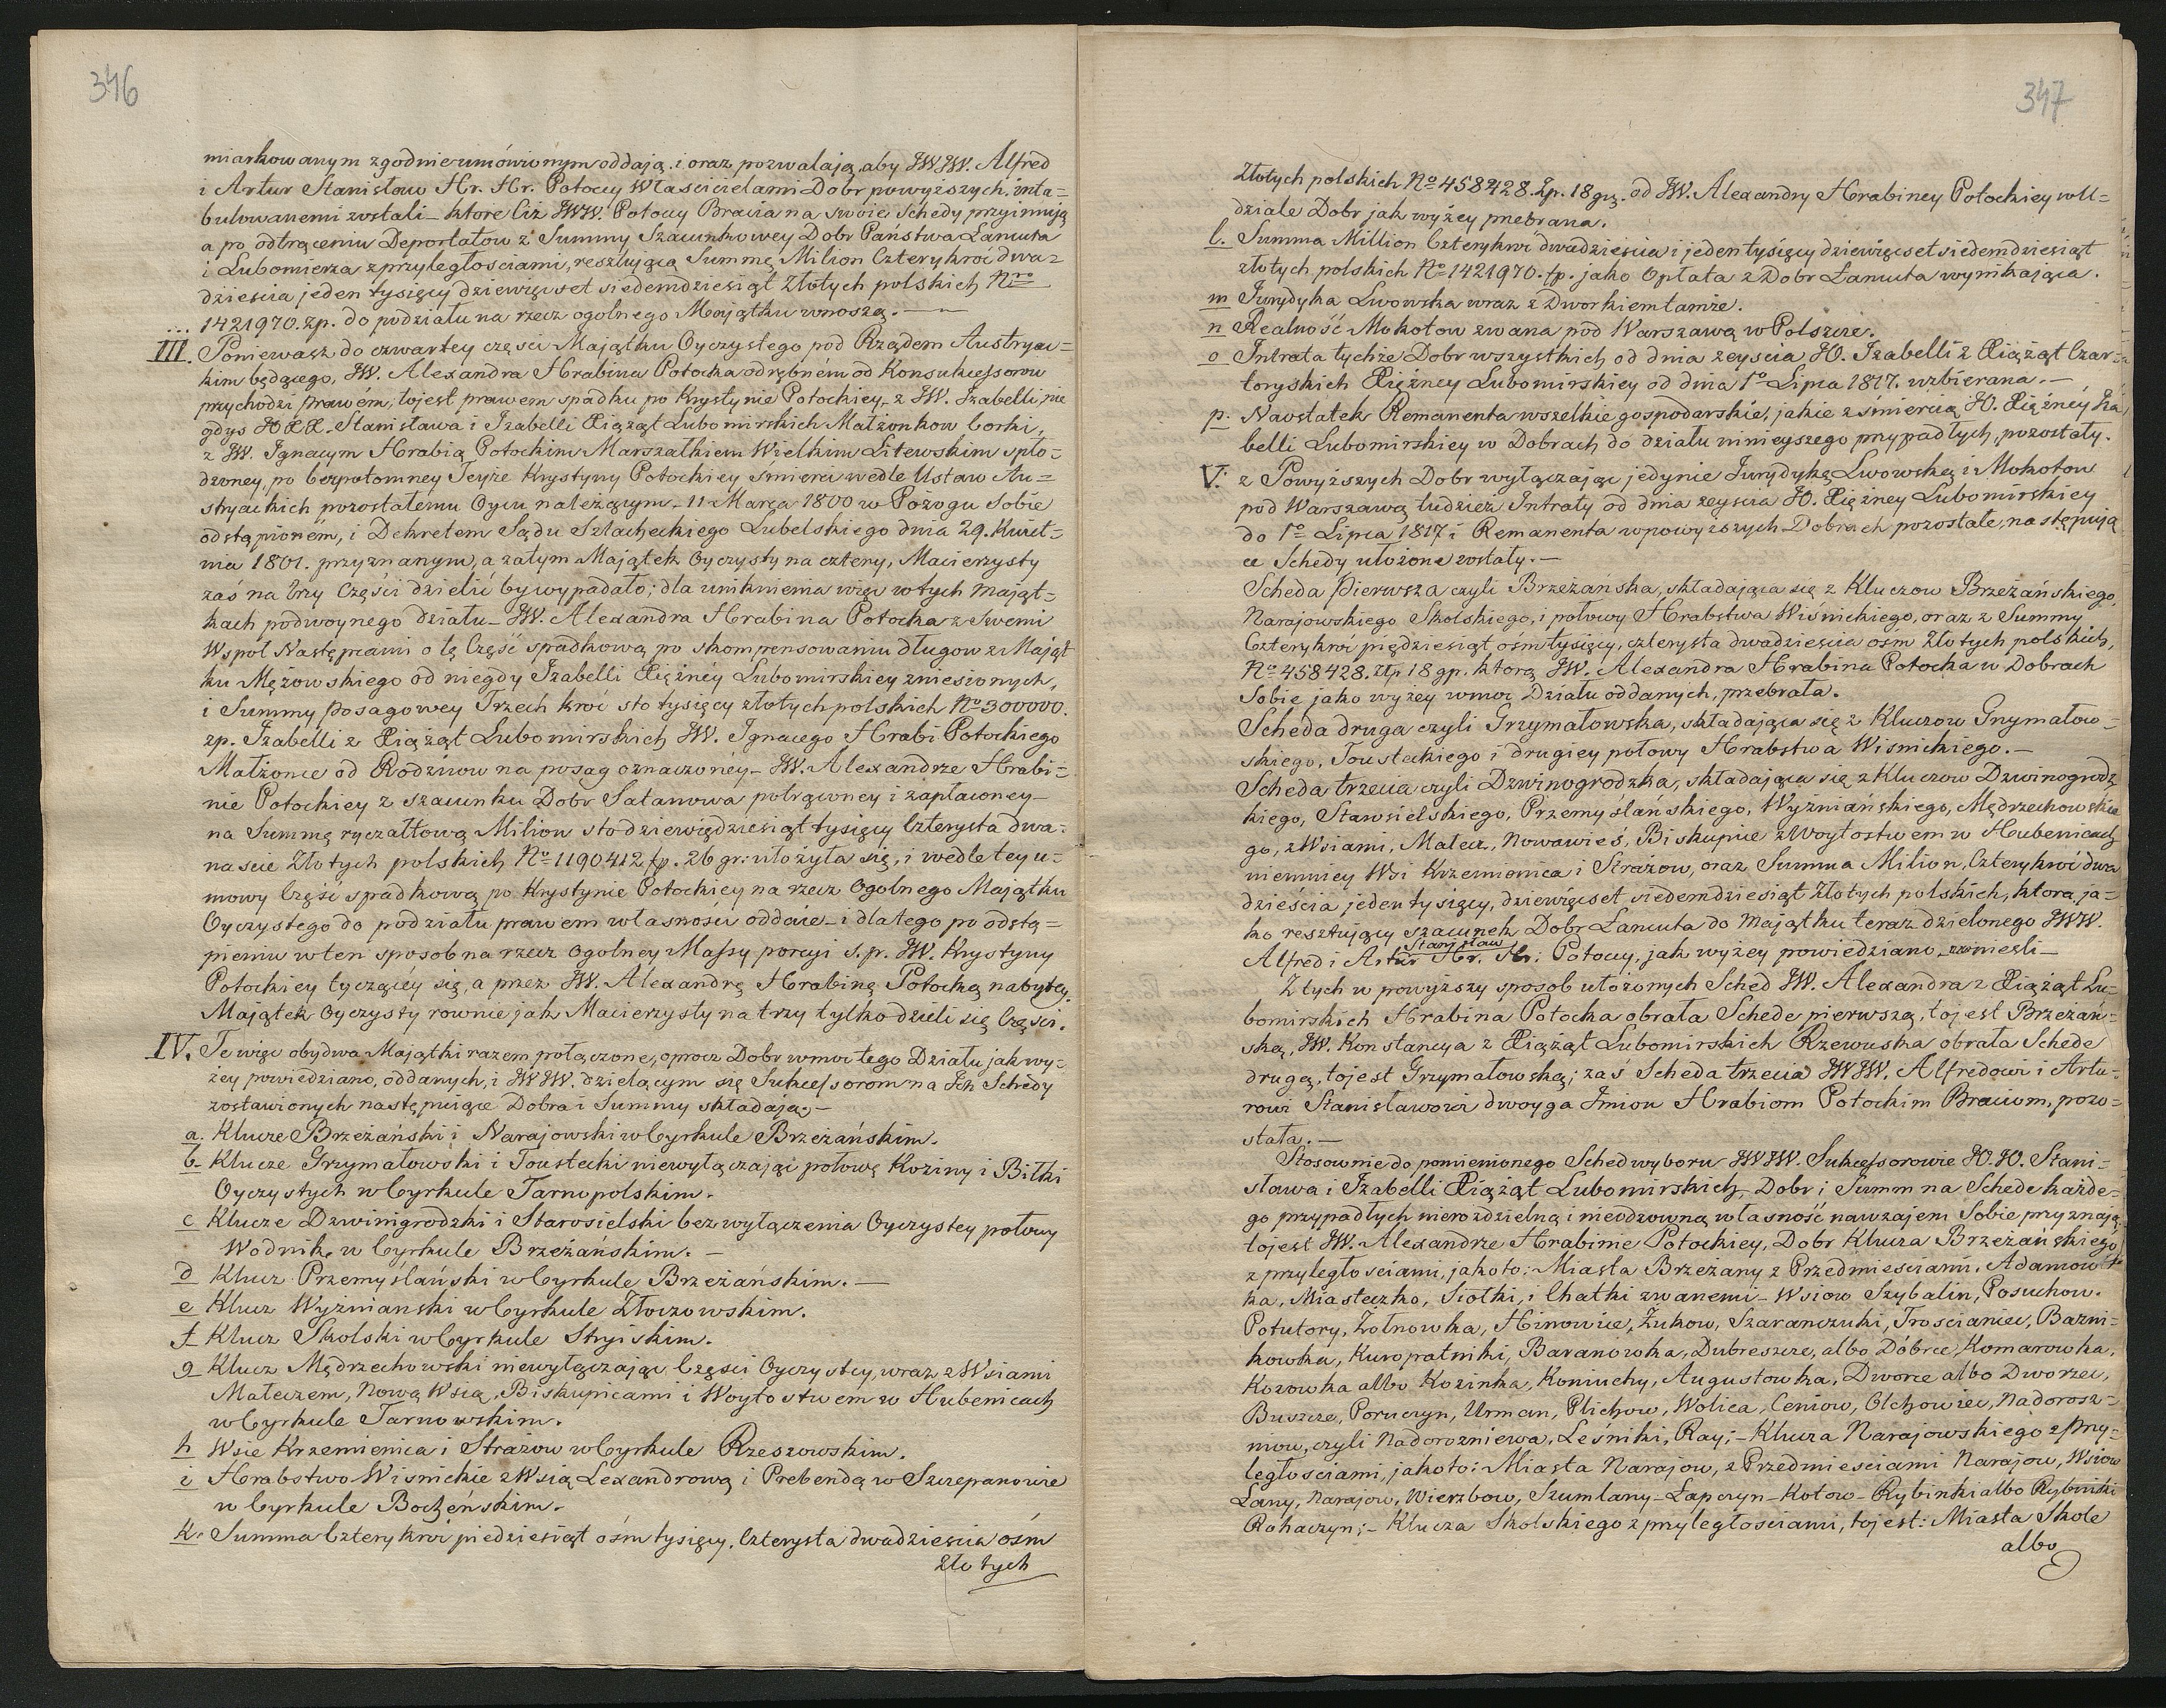 346
miarkowanym zgodnie umówionym oddają, i oraz pozwalają, aby JWJW. Alfred
i Artur Stanisław Hr. Hr. Potoccy Właścicielami Dobr powyższych, inta=
bulowanemi zostali – które Ciż JWW. Potoccy Bracia na swoie Schedy przyimują
a po odtrąceniu Deportatow z Summy Szacunkowey Dobr Państwa Łancuta
i Lubomierza z przyległościami, resztuyącą Summę Milion Cztérykroć dwa=
dzieścia jeden tysięcy dziewięcset siedemdziesiąt Złotych polskich Nro
1421970. zp. do podziału na rzecz ogolnego Majątku wnoszą. —
III. Poniewasz do czwartey części Majątku Oyczystego pod Rządem Austryac=
kim będącego, JW. Alexandra Hrabina Potocka odrębném od Konsukcessorow
przychodzi prawém, tojest prawem spadku po Krystynie Potockiey, z JW. Izabelli, nie
gdys JO XX. Stanisława i Izabelli Xiążąt Lubomirskich Małżonkow Corki,
z JW. Ignacym Hrabią Potockim Marszałkiem Wielkim Litewskim spło=
dzoney, po bezpotomney Teyże Krystyny Potockiey śmierci wedle Ustaw Au=
stryackich pozostałemu Oycu należącym, 11 Marca 1800 w Pożogu Sobie
odstąpioném, i Dekretem Sądu Szlacheckiego Lubelskiego dnia 29. Kwiet=
nia 1801. przyznanym, a zatym Majątek Oyczysty na cztery, Macierzysty
zaś na trzy Części dzielić by wypadało; dla uniknienia więc w tych Mająt=
kach podwoynego działu – JW. Alexandra Hrabina Potocka z Swemi
Wspoł Następcami o tę Część spadkową po skompensowaniu długow z Mająt
ku Mężowskiego od niegdy Izabelli Xiężnéy Lubomirskiey zniesionych,
i Summy posagowey Trzech kroć sto tysięcy złotych polskich No 300000.
zp. Izabelli z Xiążąt Lubomirskich JW. Ignacego Hrabi Potockiego
Małżonce od Rodzicow na posag oznaczonéy – JW. Alexandrze Hrabi=
nie Potockiey z szacunku Dobr Satanowa potrąconey i zapłaconey –
na Summę ryczałtową Milion sto dziewięćdziesiąt tysięcy Czterysta dwa=
nascie Złotych polskich No 1190412 zp. 26 gr: ułożyła się, i wedle tey u=
mowy Część spadkową po Krystynie Potockiey na rzecz Ogolnego Majątku
Oyczystego do podziału prawem własności oddaie – i dlatego po odstą=
pieniu w ten sposob na rzecz Ogolney Massy porcyi s. p. JW. Krystyny
Potockiey tyczącéy się, a przez JW. Alexandrę Hrabinę Potocką nabytey.
Majątek Oyczysty rownie jak Macierzysty na trzy tylko dzieli się Części.
IV. Te więc obydwa Majątki razem połączone, oprocz Dobr w moc tego Działu jak wy=
żey powiedziano, oddanych, i JWJW. dzielącym się Sukcessorom na Ich Schedy
zostawionych następuiące Dobra i Summy składaią: –
a. Klucze Brzeżański i Narajowski w Cyrkule Brzeżańskim.
b. Klucze Grzymałowski i Toustecki niewyłączając połowę Koziny i Bitki
Oyczystych w Cyrkule Tarnopolskim.
c Klucze Dzwinigrodzki i Starosielski bez wyłączenia Oyczystey połowy
Wodnik w Cyrkule Brzeżańskim. –
d Klucz Przemyślański w Cyrkule Brzeżańskim. —
e Klucz Wyżnianski w Cyrkule Złoczowskim.
f Klucz Skolski w Cyrkule Stryiskim.
g Klucz Mędrzechowski niewyłączając Części Oyczystey, wraz z Wsiami
Maleczem, Nową Wsią, Biskupicami i Woytostwem w Hubenicach
w Cyrkule Tarnowskim.
h Wsie Krzemienica i Strażow w Cyrkule Rzeszowskim.
i Hrabstwo Wisnickie z Wsią Lexandrową i Prebendą w Szczepanowie
w Cyrkule Bocheńskim.
k. Summa Cztery kroć piedziesiąt ośm tysięcy, Czterysta dwadzieścia ośm
złotych
347
Złotych polskich No 458428. Zp. 18 gr. od JW. Alexandry Hrabiney Potockiey w U=
dziale Dobr jak wyżey przebrana.
l. Summa Million Czterykroć dwadzieścia i jeden tysięcy dziewięcset siedemdziesiąt
złotych polskich No 1421970. zp. jako Opłata z Dobr Łancuta wynikająca.
m Jurydyka Lwowska wraz z Dworkiem tamże.
n Realność Mokotow zwana pod Warszawą w Polszcze.
o Intrata tychże Dobr wszystkich od dnia zeyscia JO. Izabelli z Xiążąt Czar=
toryskich Xiężney Lubomirskiey od dnia 1o Lipca 1817. uzbierana. –
p. Naostatek Remanenta wszelkie gospodarskie, jakie z śmiercią JO. Xiężnéy Iza
belli Lubomirskiey w Dobrach do działu ninieyszego przypadłych, pozostały.
V. z Powyższych Dobr wyłączając jedynie Jurydykę Lwowską i Mokotow
pod Warszawą tudzież Intraty od dnia zeyscia JO. Xiężney Lubomirskiey
do 1o Lipca 1817 i Remanenta w powyższych Dobrach pozostałe, następują
ce Schedy ułożone zostały. –
Scheda Pierwsza czyli Brzeżańska, składająca się z Kluczow Brzeżańskiego,
Narajowskiego Skolskiego, i połowy Hrabstwa Wiśnickiego, oraz z Summy
Czterykroć pięćdziesiąt ośm tysięcy, czterysta dwadzieścia ośm Złotych polskich,
No 458428. Złp 18 gp. ktorą JW. Alexandra Hrabina Potocka w Dobrach
Sobie jako wyżey w moc Działu oddanych, przebrała.
Scheda druga czyli Grzymałowska, składająca się z Kluczow Grzymałow=
skiego, Tousteckiego i drugiey połowy Hrabstwa Wisnickiego. –
Scheda trzecia czyli Dzwinogrodzka, składająca się z Kluczow Dzwinogrodz
kiego, Starosielskiego, Przemyślańskiego, Wyżniańskiego, Mędrzechowskie
go, z Wsiami, Malecz, Nowawieś, Biskupice z Woytostwem w Hubenicach
niemniey Wsi Krzemienica i Strażow, oraz Summa Milion, Czterykroć dwa
dzieścia jeden tysięcy, dziewięcset siedemdziesiąt Złotych polskich, ktora ja=
ko resztujący szacunek Dobr Łancuta do Majątku teraz dzielonego JWW.
Stanisław
Alfred i Artur Hr. Hr. Potoccy, jak wyżey powiedziano, wnieśli –
Z tych w powyższy sposob ułożonych Sched JW. Alexandra z Xiążąt Lu=
bomirskich Hrabina Potocka obrała Schede pierwszą, tojest Brzeżań=
ską, JW. Konstancya z Xiążąt Lubomirskich Rzewuska obrała Schede
drugą, tojest Grzymałowską; zaś Scheda trzecia JWJW. Alfredowi i Artu=
rowi Stanisławowi dwoyga Imion Hrabiom Potockim Braciom, pozo=
stała. –
Stosownie do pomienionego Sched wyboru JWJW. Sukcessorowie JO. JO. Stani=
sława i Izabelli Xiążąt Lubomirskich, Dobr i Summ na Schede każde=
go przypadłych nierozdzielną i nieodzowną własność nawzajem Sobie przyznają
tojest JW. Alexandrze Hrabinie Potockiey, Dobr Klucza Brzeżańskiego
z przyległościami, jakoto: Miasta Brzeżany z Przedmieściami, Adamow
ka, Miasteczko, Siołki, i Chatki zwanemi – Wsiow Szybalin, Posuchow,
Potutory, Żołnowka, Hinowice, Żukow, Szaranczuki, Trościaniec, Bazni=
kowka, Kuropatniki, Baranowka, Dubreszcze, albo Dóbrce, Komarowka,
Kozowka albo Kozinka, Koniuchy, Augustowka, Dworce albo Dworzec,
Buszcze, Poruczyn, Urman, Plichow, Wolica, Ceniow, Olchowiec, Nadorosz=
niow, czyli Nadorozniewa, Leśniki, Ray; – Klucza Narajowskiego z przy=
ległościami, jakoto: Miasta Narajow, z Przedmieściami Narajow, Wsiow
Łany, Narajow, Wierzbow, Szumlany – Łapczyn – Kotow – Rybiński albo Rybiniki
Rohaczyn; – Klucza Skolskiego z przyległościami, tojest: Miasta Skole
albo